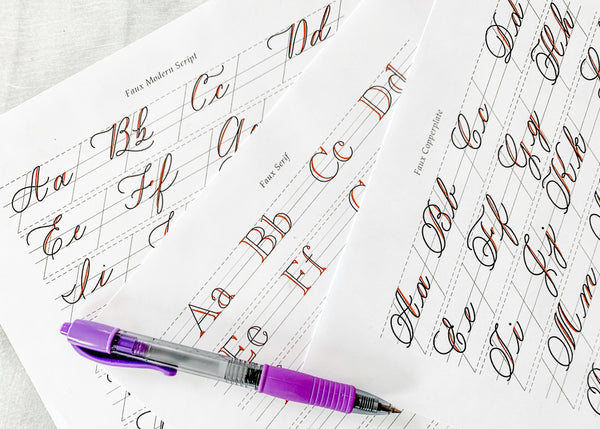 Faux Modern Script
Aa Bb Cc Dd
Ee Ff
Ii
Faux Serif
Aa Bb Cc Dd
Ee Ff
Faux Copperplate
Aa Bb Cc Dd
Ee Ff Gg Hh
Ii Jj Kk
Mm